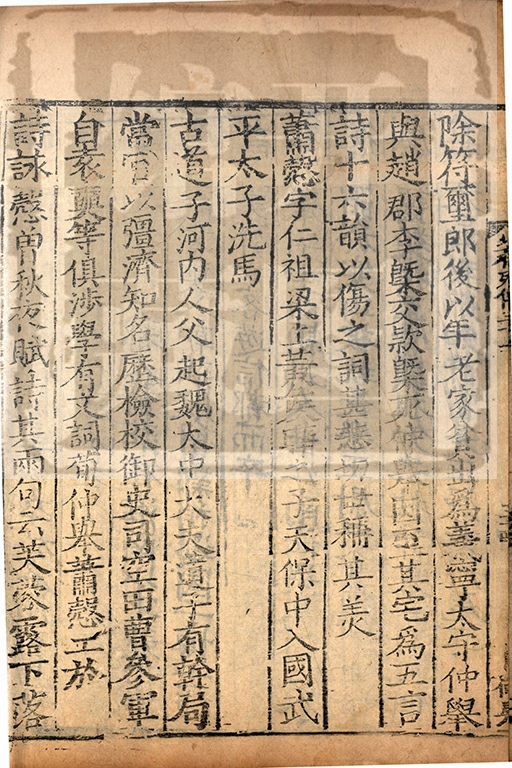 除符璽郎後以年老家貧出為義寧太守仲舉
與趙郡李槩交款槩死仲舉因至其宅為五言
詩十六韻以傷之詞甚悲切世稱其美
蕭慤字仁祖梁上黃侯曄之子天保中入國武
平太子洗馬
古道子河內人父起魏太中大夫道子有幹局
當官以彊濟知名歷檢校御史司空田曹參軍
自袁奭等俱涉學有文詞荀仲舉蕭慤工於
詩詠慤曽秋夜賦詩其兩句云芙蓉露下落